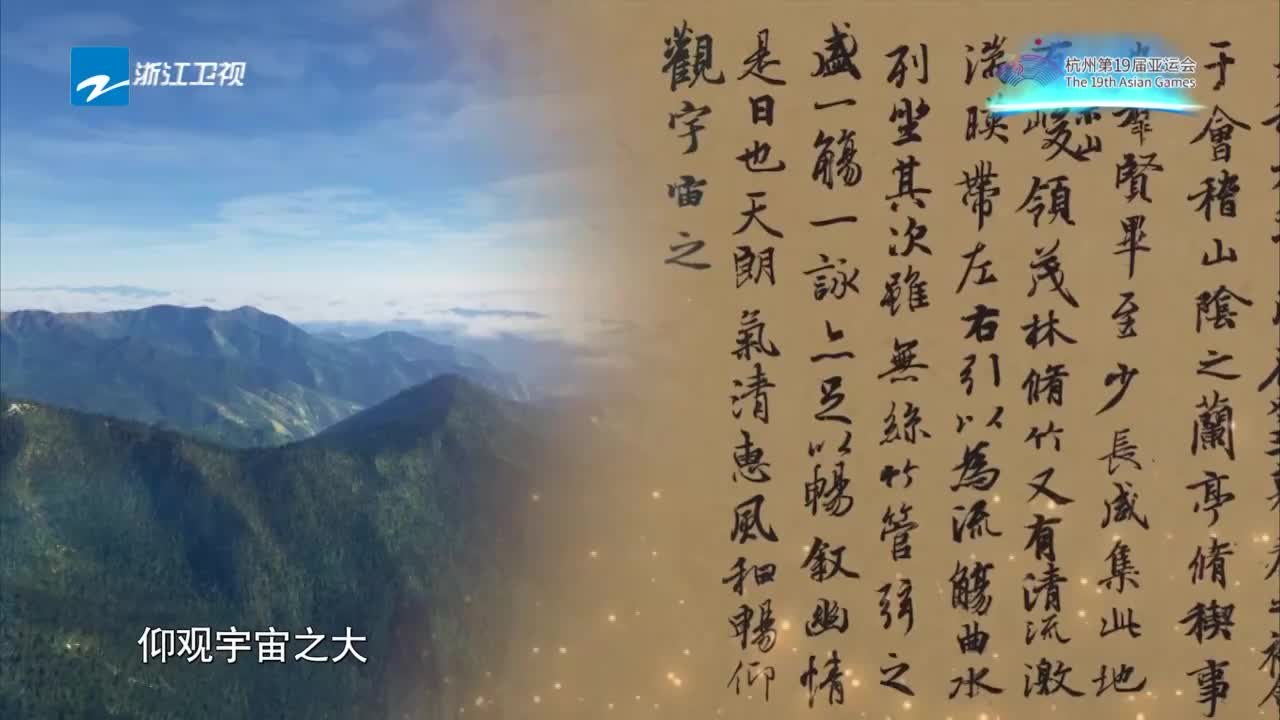 浙江卫视
杭州第19届亚运会
The 19th Asian Games
于會稽山陰之蘭亭脩稧事
羣賢畢至少長咸集此地
峻領茂林脩竹又有清流激
湍暎帶左右引以為流觴曲水
列坐其次雖無絲竹管弦之
盛一觴一詠亦足以暢叙幽情
是日也天朗氣清惠風和暢仰
觀宇宙之
仰观宇宙之大